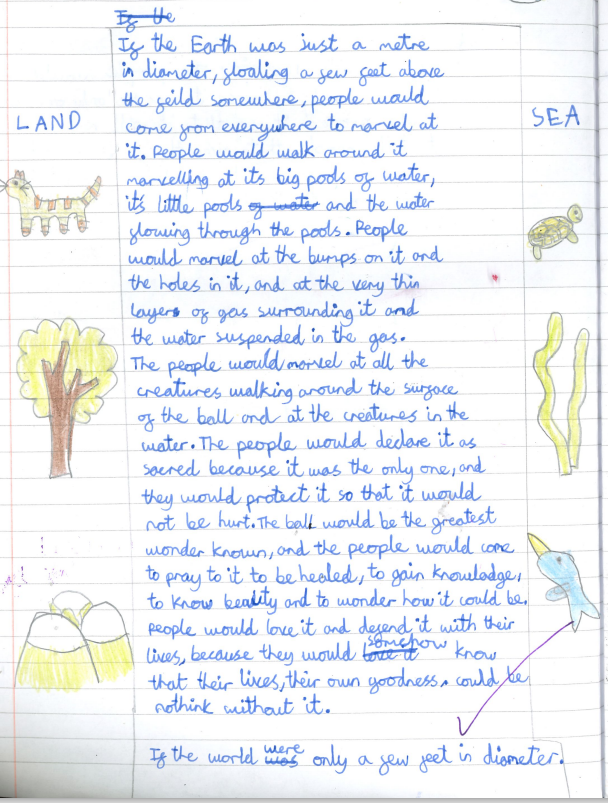 If the
If the Earth was just a metre
in diameter, floating a few feet above
the feild somewhere, people would
LAND
come from everywhere to marvel at
SEA
it. People would walk around it
marvelling at its big pools of water,
it's little pools of water and the water
flowing through the pools. People
would marvel at the bumps on it and
the holes in it, and at the very thin
layers of gas surrounding it and
the water suspended in the gas.
The people would marvel at all the
creatures walking around the surface
of the ball and at the creatures in the
water. The people would declare it as
sacred because it was the only one, and
they would protect it so that it would
not be hurt. The ball would be the greatest
wonder known, and the people would come
to pray to it to be healed, to gain knowledge,
to know beauty and to wonder how it could be.
People would love it and defend it with their
lives, because they would love it somehow know
that their lives, their own goodness, could be
nothink without it.
If the world was were only a few feet in diameter.